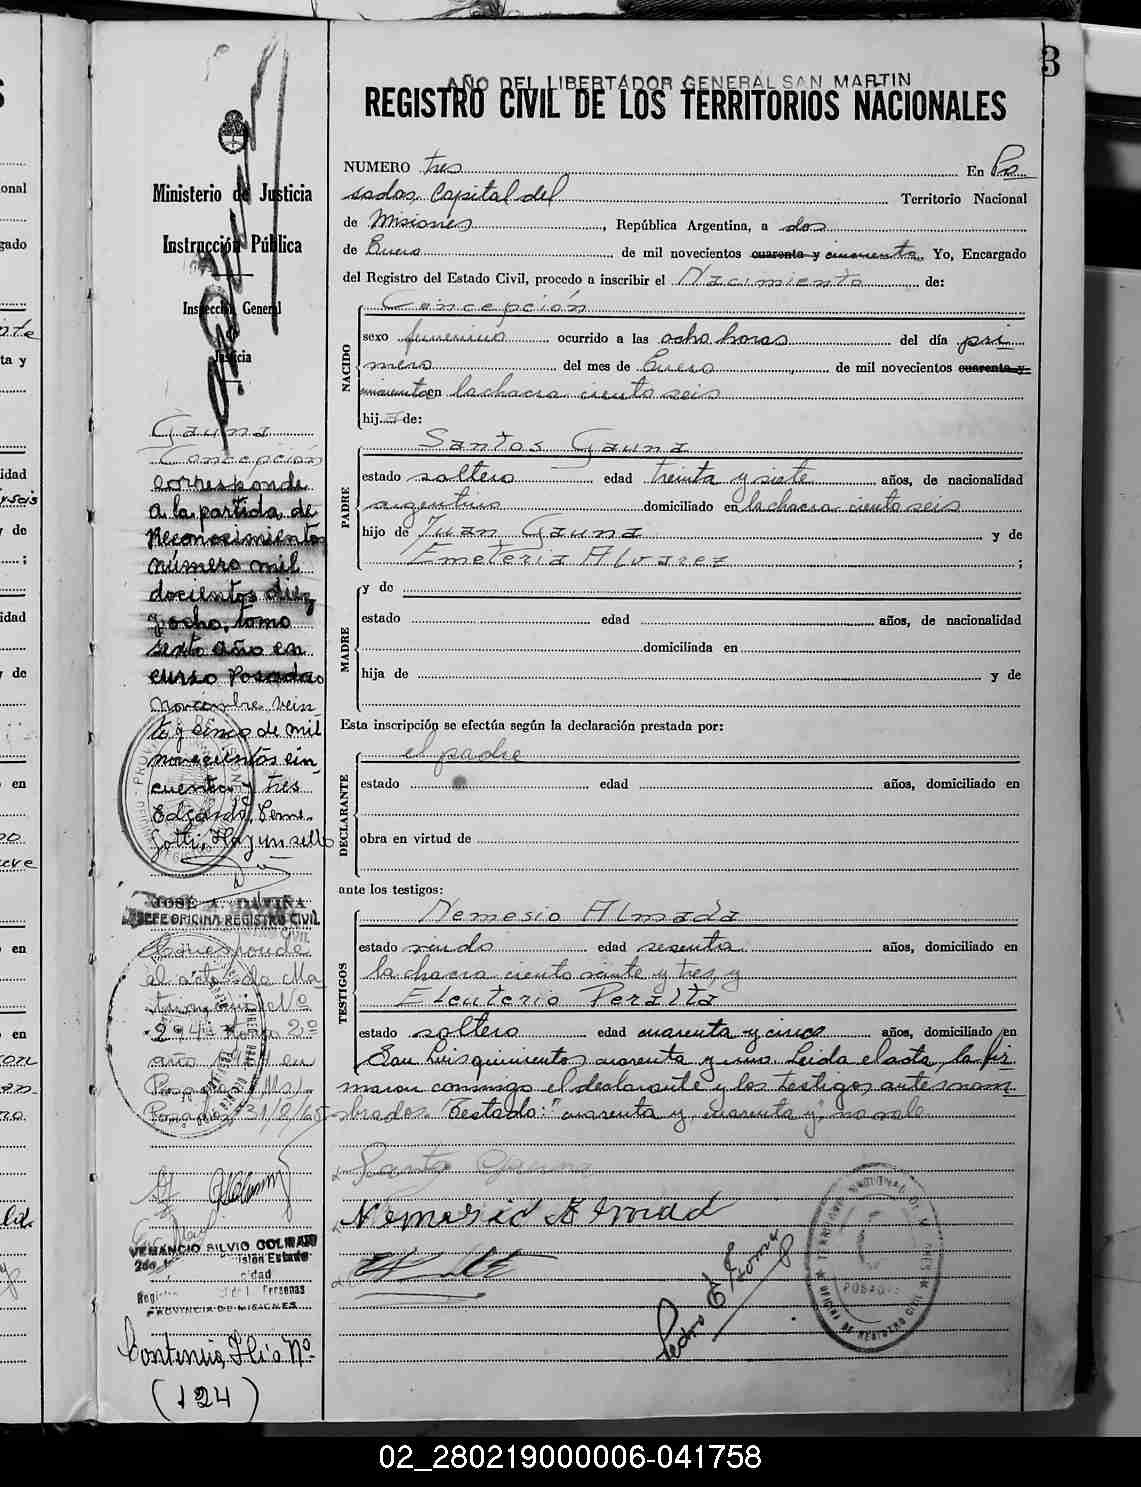 3
AÑO DEL LIBERTADOR GENERAL SAN MARTIN
REGISTRO CIVIL DE LOS TERRITORIOS NACIONALES
NUMERO tres En Po
sadas, Capital del Territorio Nacional
de Misiones, República Argentina, a dos
de Enero de mil novecientos cuarenta y cincuenta. Yo, Encargado
del Registro del Estado Civil, procedo a inscribir el Nacimiento de:
NACIDO
Concepción
sexo femenino ocurrido a las ocho horas del día pri
mero del mes de Enero, de mil novecientos cuarenta y
cincuenta en la chacra ciento seis
hij de:
PADRE
Santos Gauna
estado soltero edad treinta y siete años, de nacionalidad
argentino domiciliado en la chacra ciento seis
hijo de Juan Gauna y de
Emeteria Alvarez ;
MADRE
y de
estado edad años, de nacionalidad
domiciliada en
hija de y de
Esta inscripción se efectúa según la declaración prestada por:
DECLARANTE
el padre
estado edad años, domiciliado en
obra en virtud de
ante los testigos:
TESTIGOS
Nemesio Almada
estado viudo edad sesenta años, domiciliado en
la chacra ciento veinte y tres, y
Eleuterio Peralta
estado soltero edad cuarenta y cinco años, domiciliado en
San Luis quinientos cuarenta y uno. Leida el acta, la fir
maron conmigo el declarante y los testigos antes nom
brados. Testado: "cuarenta y, cuarenta y", no vale
Santos Gauna
Nemesio Almad
Pedro
TERRITORIO NACIONAL DE MISIONES
POSADAS
OFICINA DE REGISTRO CIVIL
Ministerio de Justicia
Instrucción Pública
Inspección General
Justicia
Gauna
Concepción
corresponde
a la partida de
Reconocimiento
número mil
docientos diez
y ocho, tomo
sexto año en
curso Posadas
noviembre vein
te y cinco de mil
novecientos cin
cuenta y tres
Edgardo
sello
JOSÉ A. DAVIÑA
JEFE OFICINA REGISTRO CIVIL
Corresponde
al acta de Ma
trimonio Nº
294 Tomo 2º
año en
Posadas
Posadas 31/8/65
VENANCIO SILVIO COLMAN
PROVINCIA DE MISIONES
Continúa Flio Nº
(124)
02_280219000006-041758